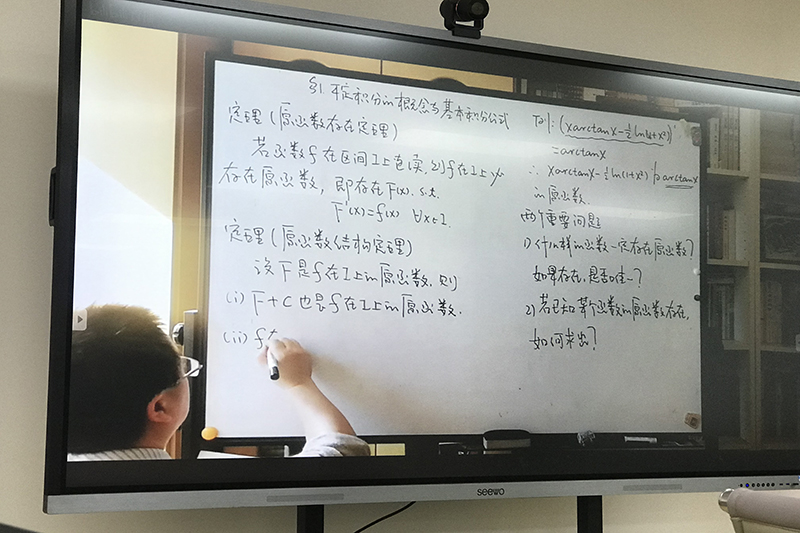 §1 不定积分的概念与基本积分公式
定理(原函数存在定理)
若函数f在区间I上连续,则f在I上必
存在原函数,即存在F(x), s.t.
F'(x)=f(x) ∀x∈I.
定理(原函数结构定理)
设F是f在I上的原函数,则
(i) F+C也是f在I上的原函数.
(ii) f在
例1: (xarctanx-½ln(1+x²))'
=arctanx
∴ xarctanx-½ln(1+x²)为arctanx
的原函数.
两个重要问题
1) 什么样的函数一定存在原函数?
如果存在,是否唯一?
2) 若已知某个函数的原函数存在,
如何求出?
seewo